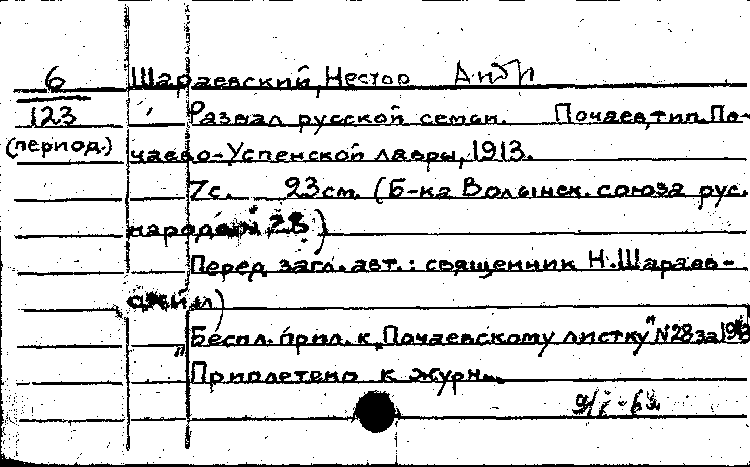 6 Шараевский, Нестор
123 Развал русской семьи. Почаев, тип. По-
(период.) чаево-Успенской лавры, 1913.
7с. 23см. (Б-ка Волынск. союза рус.
народа. № 28)
Перед загл. авт.: священник Н. Шараев-
ский)
"Беспл. прил. к "Почаевскому листку" N 28 за 1913
Приплетено к журн.